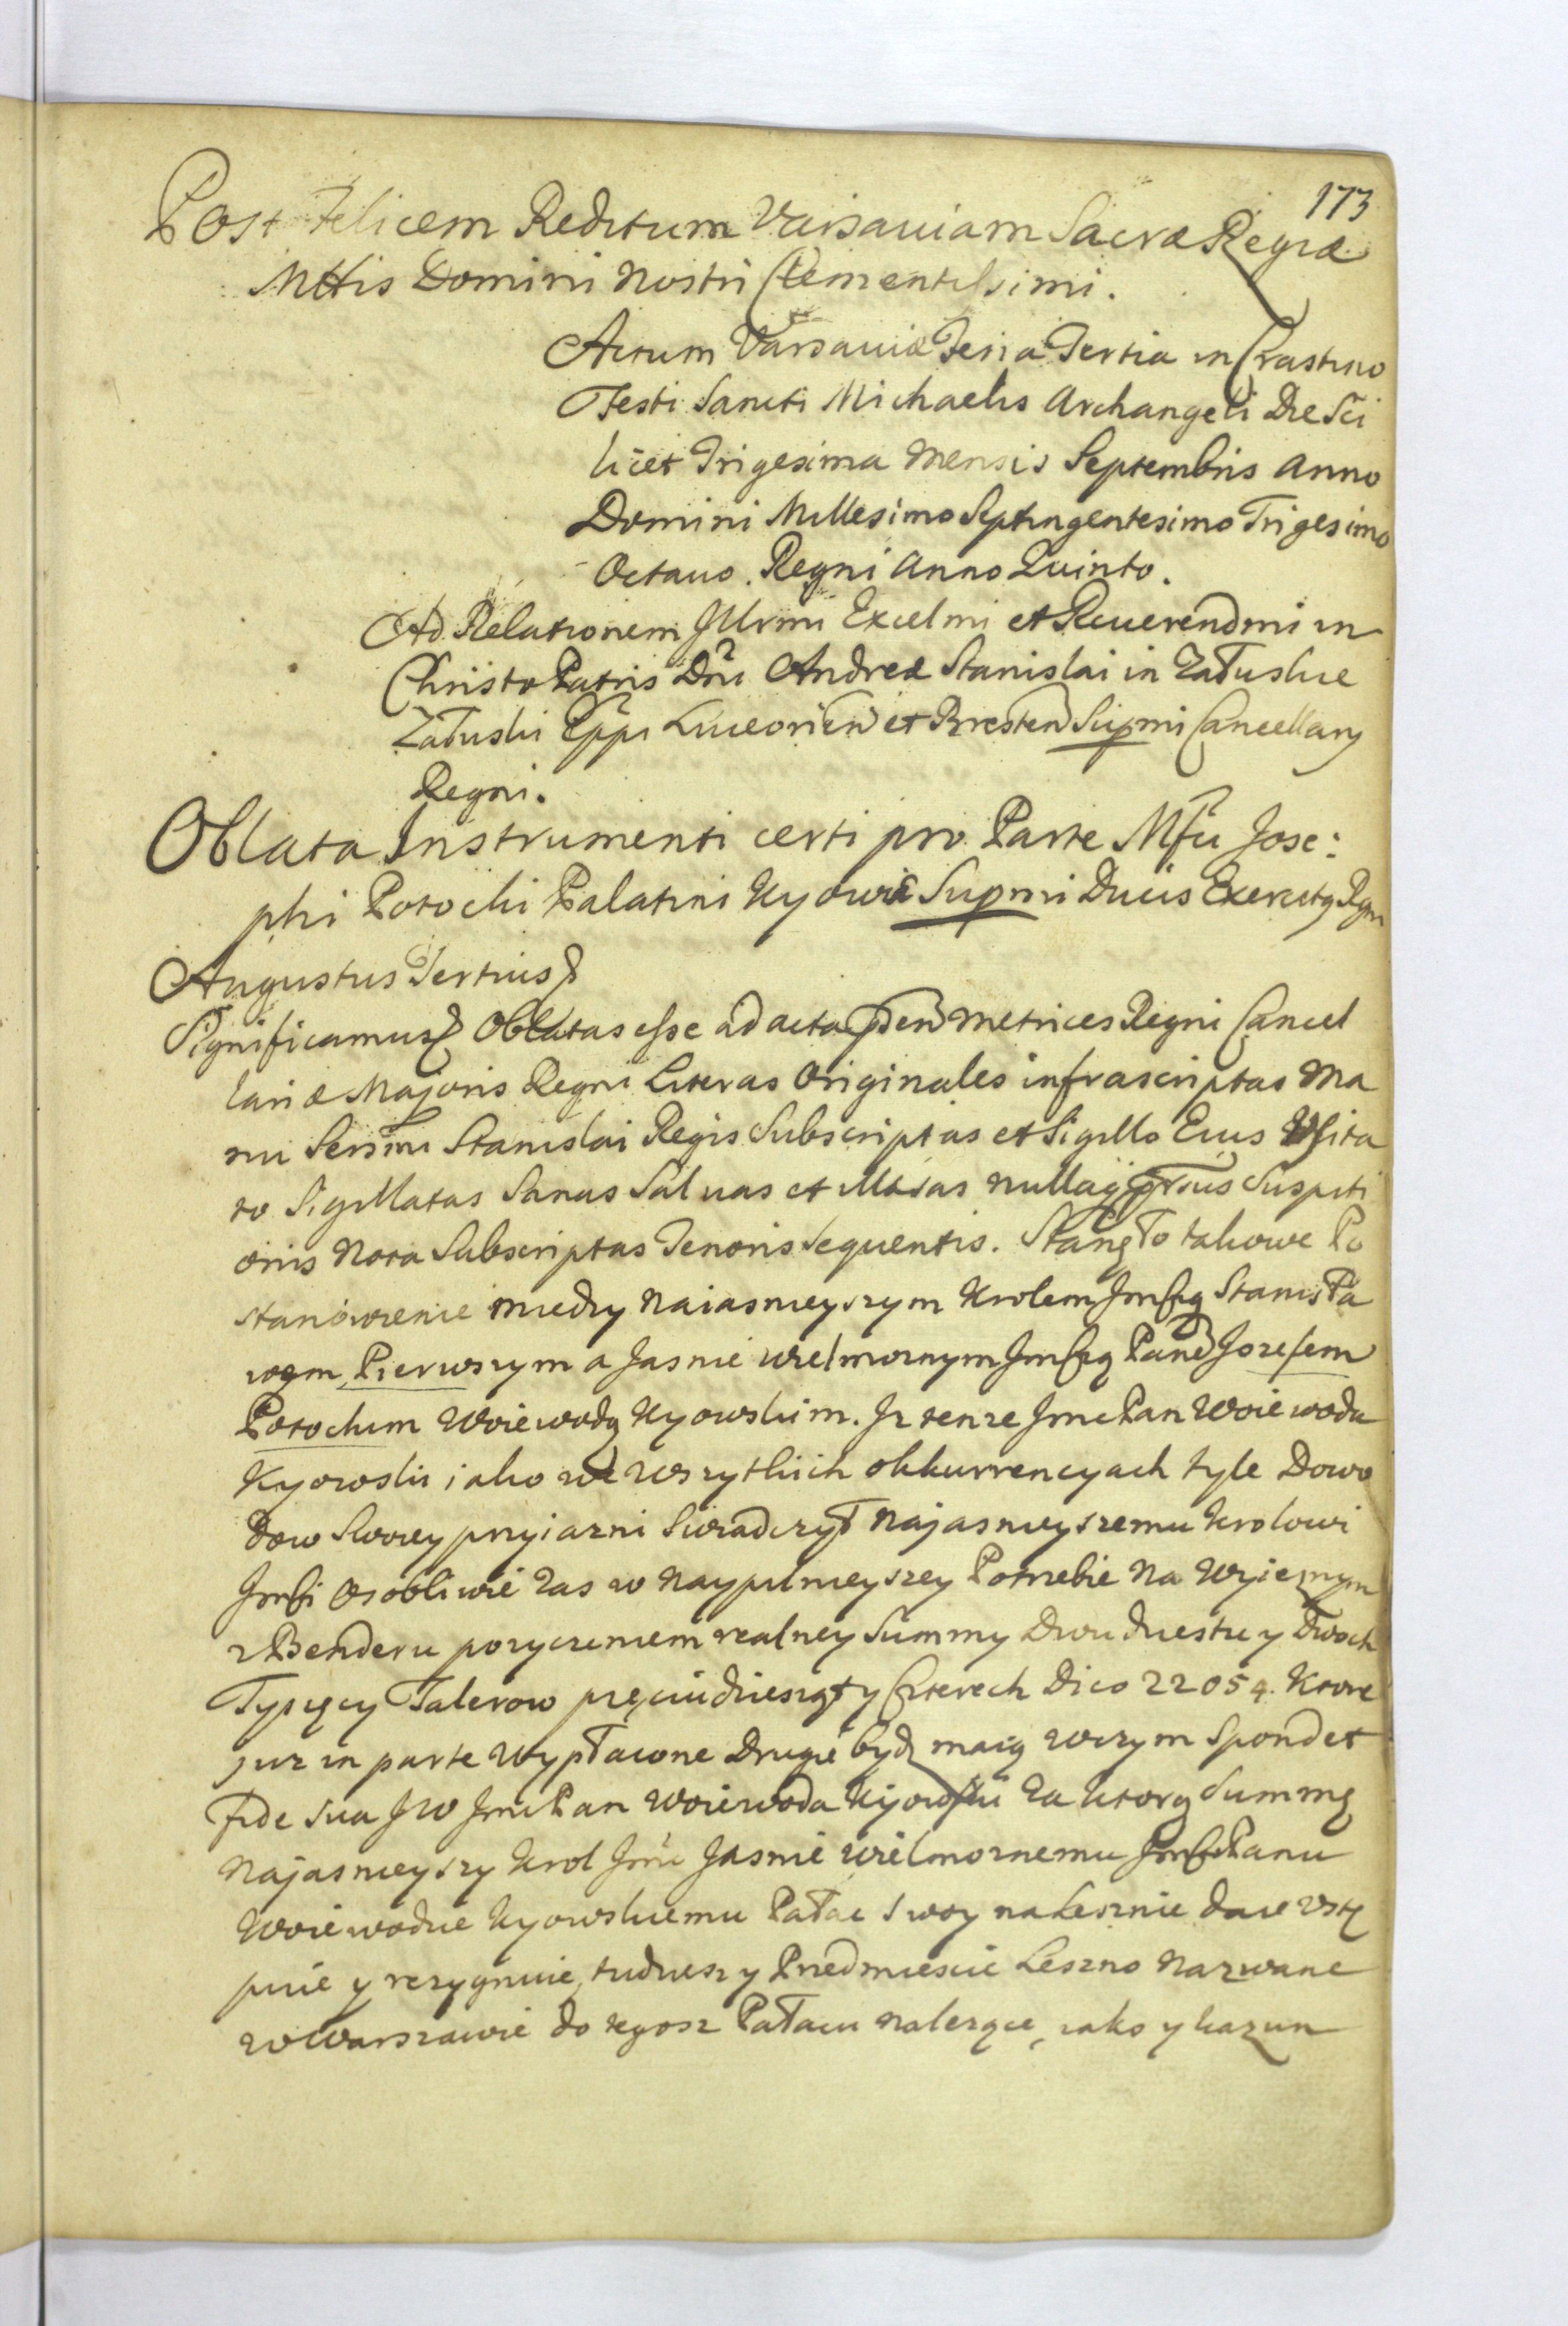 173
Post Felicem Reditum Varsauiam Sacræ Regiæ
Mttis Domini Nostri Clementissimi.
Actum Varsauiæ Feria Tertia in Crastino
Festi Sancti Michaelis Archangeli Die Sci
licet Trigesima Mensis Septembris Anno
Domini Millesimo Septingentesimo Trigesimo
Octauo. Regni Anno Quinto.
Ad Relationem Illrmi Excelmi et Reuerendmi in
Christo Patris Dni Andreæ Stanislai in Załuskie
Załuski Eppi Luceorien et Bresten Supmi Cancellary
Regni.
Oblata Instrumenti certi pro Parte Mfci Jose:
phi Potocki Palatini Kyowiæ Supmi Ducis Exercitq Rgni
Augustus Tertius
Significamus Oblatas esse ad acta pñen Metrices Regni Cancel
lariæ Majoris Regni Literas Originales infrascriptas Ma
nu Sersmi Stanislai Regis Subscriptas et Sigillo Eius Usita
to Sigillatas Sanas Saluas et Illæsas nullaqq Suspiti
onis Nota Subscriptas Tenoris sequentis. Stanęło takowe Po
stanowienie między Naiasnieyszym Krolem Jmscią Stanisła
wem Pierwszym a Jasnie Wielmoznym Jmscią Pane Jozefem
Potockim Woiewodą Kyowskim. Jz tenze Jmc Pan Woiewoda
Kyowski iako we wszytkich okkurrencyach tyle Dowo
dow Swoiey przyiazni Swiadczył Najasnieyszemu Krolowi
Jmsci Osobliwie zas w Naypilnieyszey Potrzebie Na Wyieznym
z Benderu pozyczeniem realney Summy Dwudziestu y Dwoch
Tysięcy Talerow pięciudziesiąt y Czterech Dico 22054. Ktore
juz in parte Wypłacone Drugie bydz maią w czym Spondet
fide sua JW Jmc Pan Woiewoda Kijowski Za ktorą Summę
Najasnieyszy Krol Jmc Jasnie Wielmoznemu Jmsci Panu
Woiewodzie Kyowskiemu Pałac swoy na Lesznie daie Vstę
puie y rezygnuie, tudziesz y Przedmiescie Leszno Nazwane
w Warszawie do tegosz Pałacu Nalezące, iako y kazun